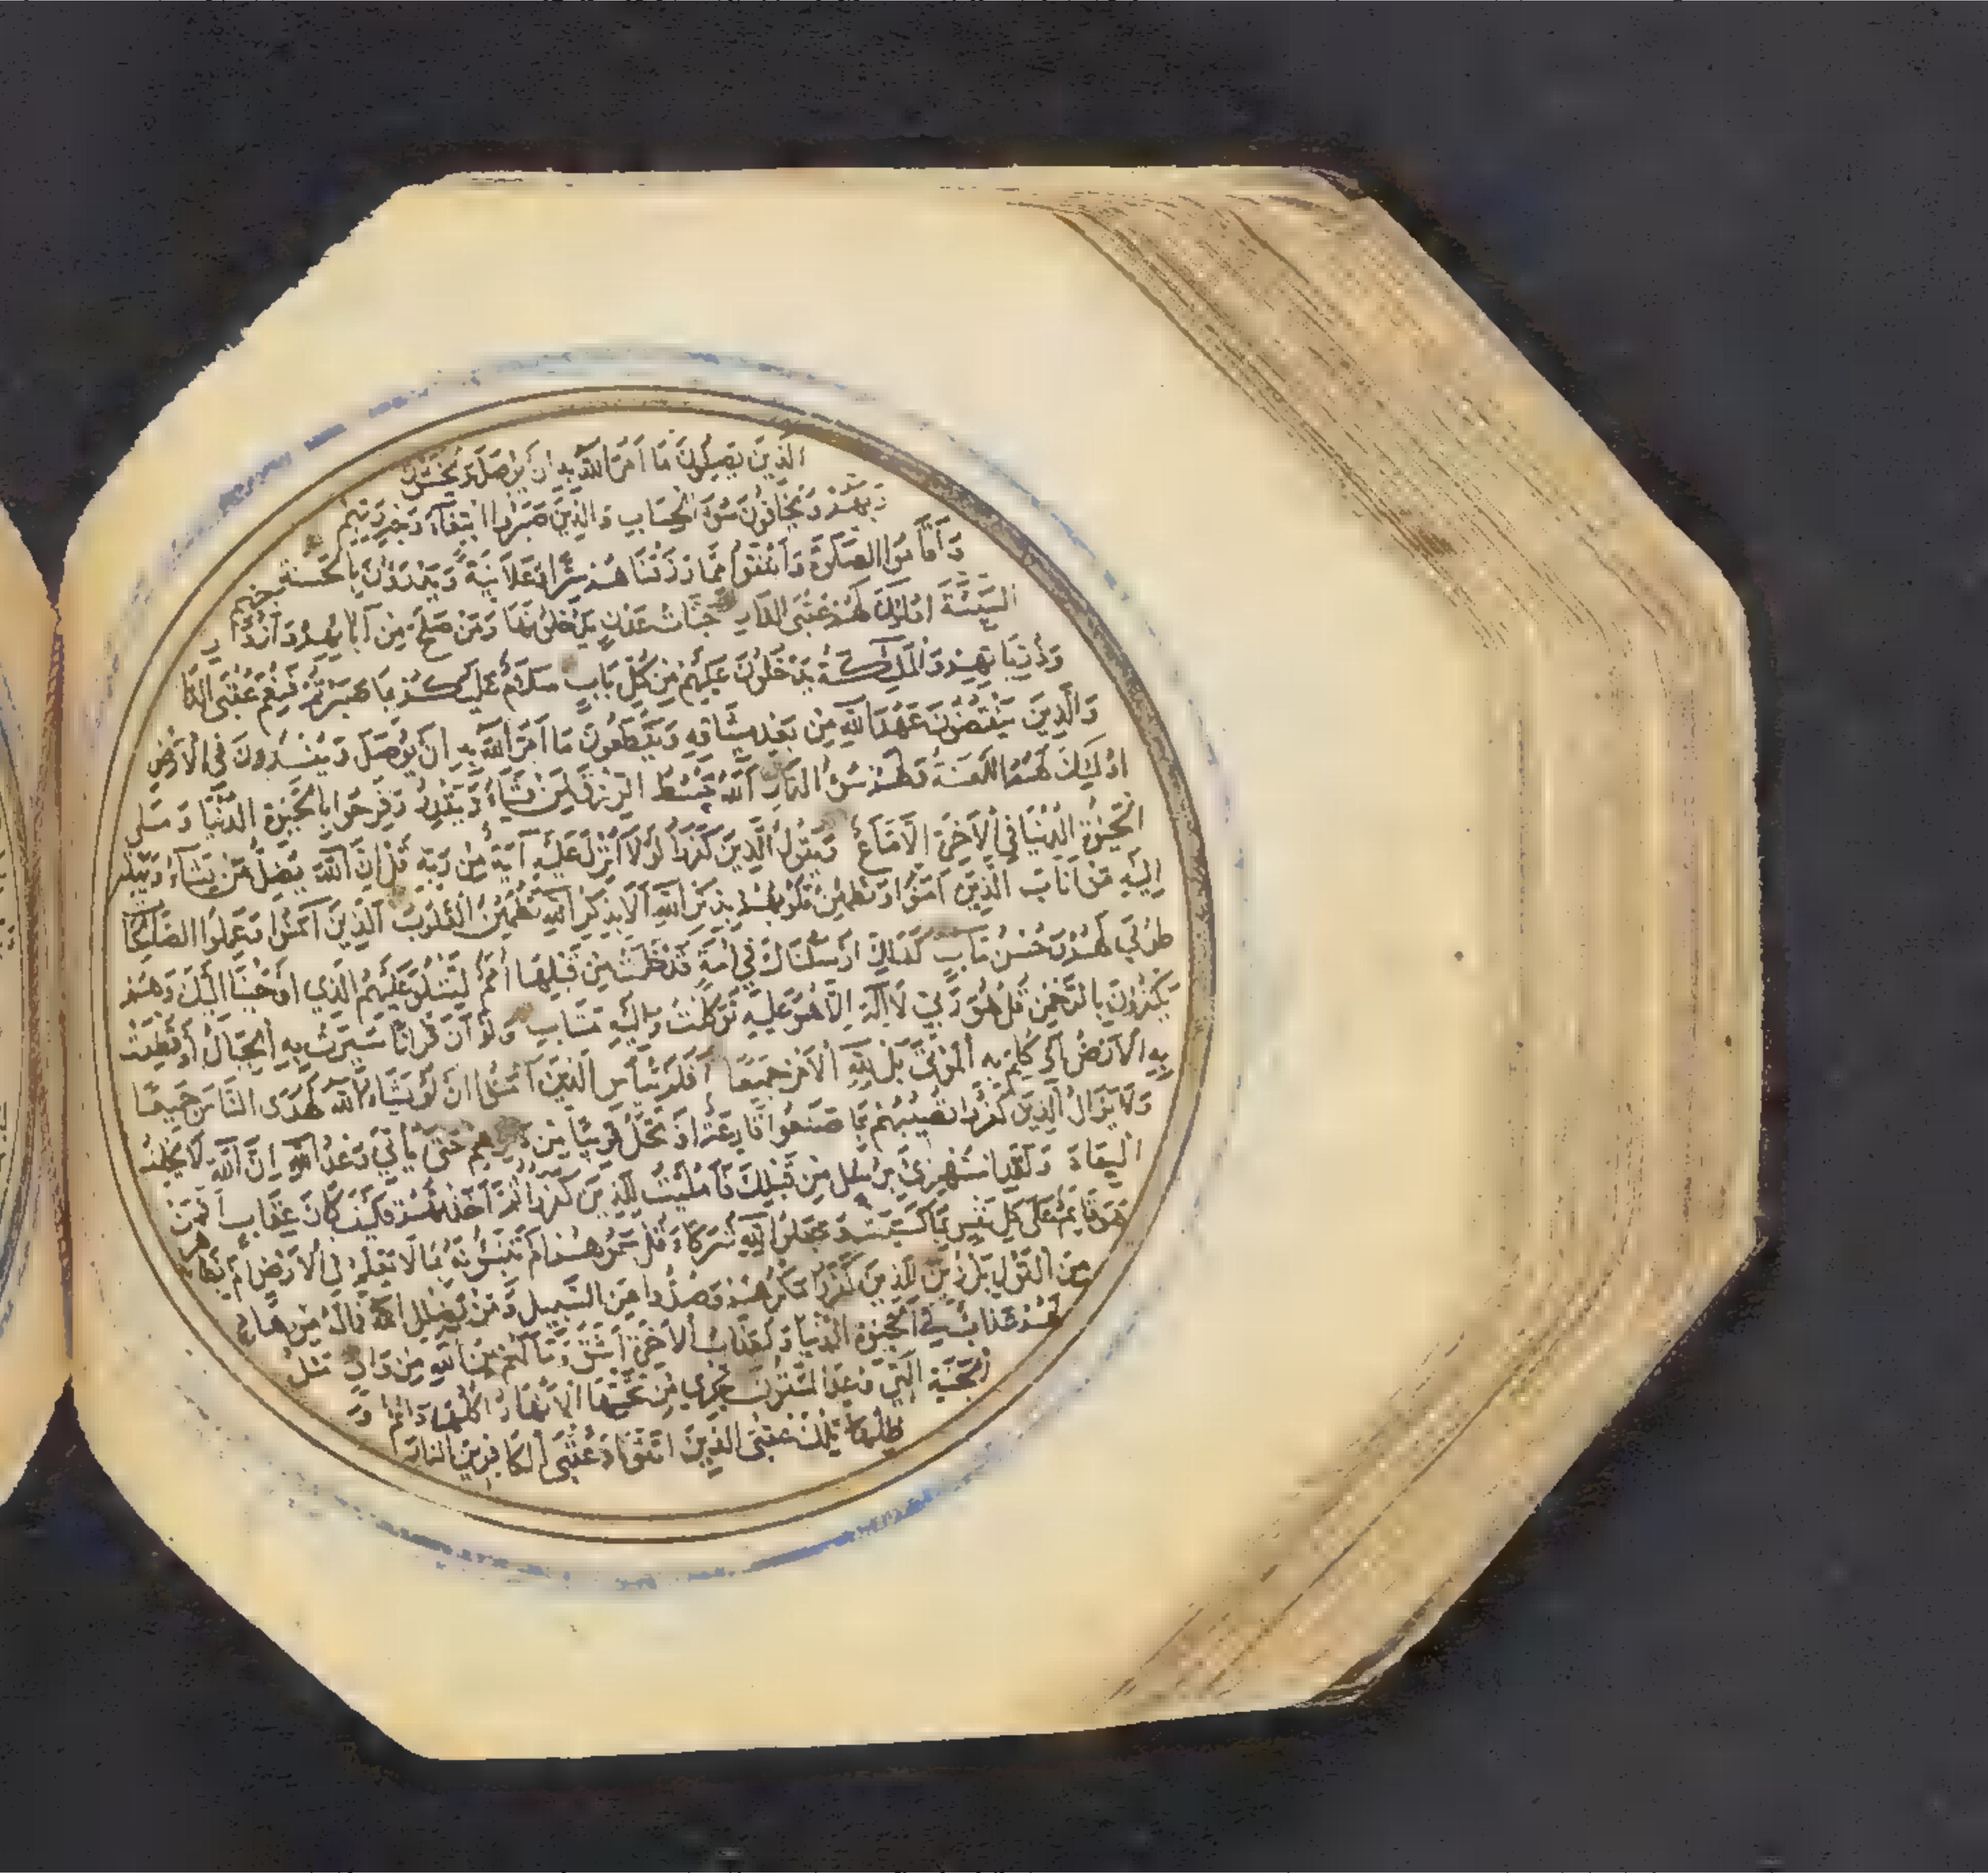 الَّذِينَ يَصِلُونَ مَا أَمَرَ اللَّهُ بِهِ أَن يُوصَلَ وَيَخْشَوْنَ
رَبَّهُمْ وَيَخَافُونَ سُوءَ الْحِسَابِ وَالَّذِينَ صَبَرُوا ابْتِغَاءَ وَجْهِ رَبِّهِمْ
وَأَقَامُوا الصَّلَوةَ وَأَنْفَقُوا مِمَّا رَزَقْنَا هُمْ سِرًّا وَعَلَانِيَةً وَيَدْرَؤُنَ بِالْحَسَنَةِ
السَّيِّئَةَ أُولَئِكَ لَهُمْ عُقْبَى الدَّارِ جَنَّاتُ عَدْنٍ يَدْخُلُونَهَا وَمَنْ صَلَحَ مِنْ آبَائِهِمْ وَأَزْوَا
وَذُرِّيَّاتِهِمْ وَالْمَلَئِكَةُ يَدْخُلُونَ عَلَيْهِمْ مِنْ كُلِّ بَابٍ سَلَامٌ عَلَيْكُمْ بِمَا صَبَرْتُمْ فَنِعْمَ عُقْبَى الدَّا
وَالَّذِينَ يَنْقُضُونَ عَهْدَ اللَّهِ مِنْ بَعْدِ مِيثَاقِهِ وَيَقْطَعُونَ مَا أَمَرَ اللَّهُ بِهِ أَنْ يُوصَلَ وَيُفْسِدُونَ فِي الْأَرْضِ
أُولَئِكَ لَهُمُ اللَّعْنَةُ وَلَهُمْ سُوءُ الدَّارِ اللَّهُ يَبْسُطُ الرِّزْقَ لِمَنْ يَشَاءُ وَيَقْدِرُ وَفَرِحُوا بِالْحَيَوةِ الدُّنْيَا وَمَا
الْحَيَوةُ الدُّنْيَا فِي الْآخِرَةِ إِلَّا مَتَاعٌ وَيَقُولُ الَّذِينَ كَفَرُوا لَوْلَا أُنْزِلَ عَلَيْهِ آيَةٌ مِنْ رَبِّهِ قُلْ إِنَّ اللَّهَ يُضِلُّ مَنْ يَشَاءُ وَيَهْدِي
إِلَيْهِ مَنْ أَنَابَ الَّذِينَ آمَنُوا وَتَطْمَئِنُّ قُلُوبُهُمْ بِذِكْرِ اللَّهِ أَلَا بِذِكْرِ اللَّهِ تَطْمَئِنُّ الْقُلُوبُ الَّذِينَ آمَنُوا وَعَمِلُوا الصَّالِحَا
طُوبَى لَهُمْ وَحُسْنُ مَآبٍ كَذَلِكَ أَرْسَلْنَاكَ فِي أُمَّةٍ قَدْ خَلَتْ مِنْ قَبْلِهَا أُمَمٌ لِتَتْلُوَ عَلَيْهِمُ الَّذِي أَوْحَيْنَا إِلَيْكَ وَهُمْ
يَكْفُرُونَ بِالرَّحْمَنِ قُلْ هُوَ رَبِّي لَا إِلَهَ إِلَّا هُوَ عَلَيْهِ تَوَكَّلْتُ وَإِلَيْهِ مَتَابِ وَلَوْ أَنَّ قُرْآنًا سُيِّرَتْ بِهِ الْجِبَالُ أَوْ قُطِّعَتْ
بِهِ الْأَرْضُ أَوْ كُلِّمَ بِهِ الْمَوْتَى بَلْ لِلَّهِ الْأَمْرُ جَمِيعًا أَفَلَمْ يَيْأَسِ الَّذِينَ آمَنُوا أَنْ لَوْ يَشَاءُ اللَّهُ لَهَدَى النَّاسَ جَمِيعًا
وَلَا يَزَالُ الَّذِينَ كَفَرُوا تُصِيبُهُمْ بِمَا صَنَعُوا قَارِعَةٌ أَوْ تَحُلُّ قَرِيبًا مِنْ دَارِهِمْ حَتَّى يَأْتِيَ وَعْدُ اللَّهِ إِنَّ اللَّهَ لَا يُخْلِفُ
الْمِيعَادَ وَلَقَدِ اسْتُهْزِئَ بِرُسُلٍ مِنْ قَبْلِكَ فَأَمْلَيْتُ لِلَّذِينَ كَفَرُوا ثُمَّ أَخَذْتُهُمْ فَكَيْفَ كَانَ عِقَابِ أَفَمَنْ
هُوَ قَائِمٌ عَلَى كُلِّ نَفْسٍ بِمَا كَسَبَتْ وَجَعَلُوا لِلَّهِ شُرَكَاءَ قُلْ سَمُّوهُمْ أَمْ تُنَبِّئُونَهُ بِمَا لَا يَعْلَمُ فِي الْأَرْضِ أَمْ بِظَاهِرٍ
مِنَ الْقَوْلِ بَلْ زُيِّنَ لِلَّذِينَ كَفَرُوا مَكْرُهُمْ وَصُدُّوا عَنِ السَّبِيلِ وَمَنْ يُضْلِلِ اللَّهُ فَمَا لَهُ مِنْ هَادٍ
لَهُمْ عَذَابٌ فِي الْحَيَوةِ الدُّنْيَا وَلَعَذَابُ الْآخِرَةِ أَشَقُّ وَمَا لَهُمْ مِنَ اللَّهِ مِنْ وَاقٍ مَثَلُ
الْجَنَّةِ الَّتِي وُعِدَ الْمُتَّقُونَ تَجْرِي مِنْ تَحْتِهَا الْأَنْهَارُ أُكُلُهَا دَائِمٌ وَ
ظِلُّهَا تِلْكَ عُقْبَى الَّذِينَ اتَّقَوْا وَعُقْبَى الْكَافِرِينَ النَّارُ